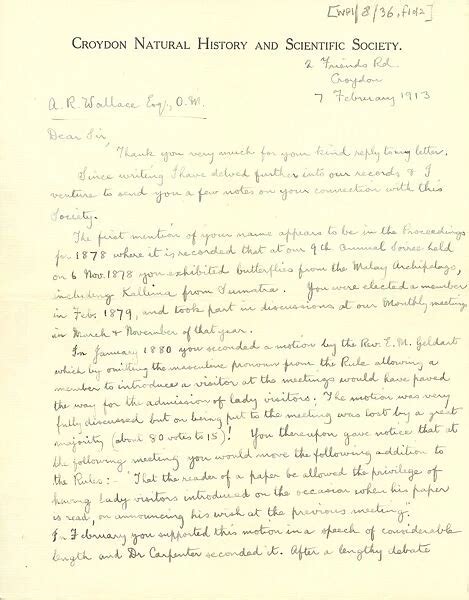 [WP1/8/36, f1of2]
CROYDON NATURAL HISTORY AND SCIENTIFIC SOCIETY.
2 Friends Rd.
Croydon
7 February 1913
A. R. Wallace Esq., O.M.
Dear Sir,
Thank you very much for your kind reply to my letter.
Since writing I have delved further into our records & I
venture to send you a few notes on your connection with this
Society.
The first mention of your name appears to be in the Proceedings
for 1878 where it is recorded that at our 9th Annual Soiree held
on 6 Nov. 1878 you exhibited butterflies from the Malay Archipelago,
including Kallima from Sumatra. You were elected a member
in Feb. 1879, and took part in discussions at our Monthly meetings
in March & November of that year.
In January 1880 you seconded a motion by the Rev. E. M. Geldart
which by omitting the masculine pronoun from the Rule allowing a
member to introduce a visitor at the meetings would have paved
the way for the admission of lady visitors. The motion was very
fully discussed but on being put to the meeting was lost by a great
majority (about 80 votes to 15)! You thereupon gave notice that at
the following meeting you would move the following addition to
the Rules: - "That the reader of a paper be allowed the privilege of
having lady visitors introduced on the occasion when his paper
is read, on announcing his wish at the previous meeting.
In February you supported this motion in a speech of considerable
length and Dr Carpenter seconded it. After a lengthy debate